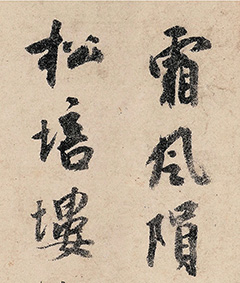 霜風隕
松培塿